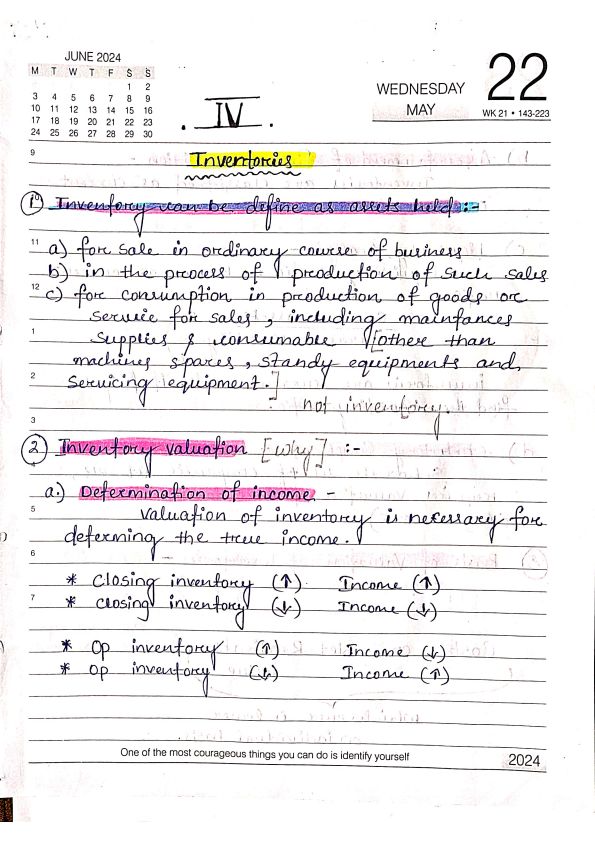 JUNE 2024
M T W T F S S
1 2
3 4 5 6 7 8 9
10 11 12 13 14 15 16
17 18 19 20 21 22 23
24 25 26 27 28 29 30
WEDNESDAY
MAY
22
WK 21 • 143-223
. IV .
9
Inventories
1) Inventory can be define as assets held :-
11 a) for sale in ordinary course of business
b) in the process of production of such sales
12 c) for consumption in production of goods or
service for sales, including mainfances
1 supplies & consumable [other than
machines spares, standy equipments and
2 servicing equipment.]
not inventory.
3
2) Inventory valuation [why] :-
a.) Determination of income -
5 valuation of inventory is necessary for
determing the true income.
6
* Closing inventory (↑) Income (↑)
7 * closing inventory (↓) Income (↓)
* Op inventory (↑) Income (↓)
* Op inventory (↓) Income (↑)
One of the most courageous things you can do is identify yourself
2024